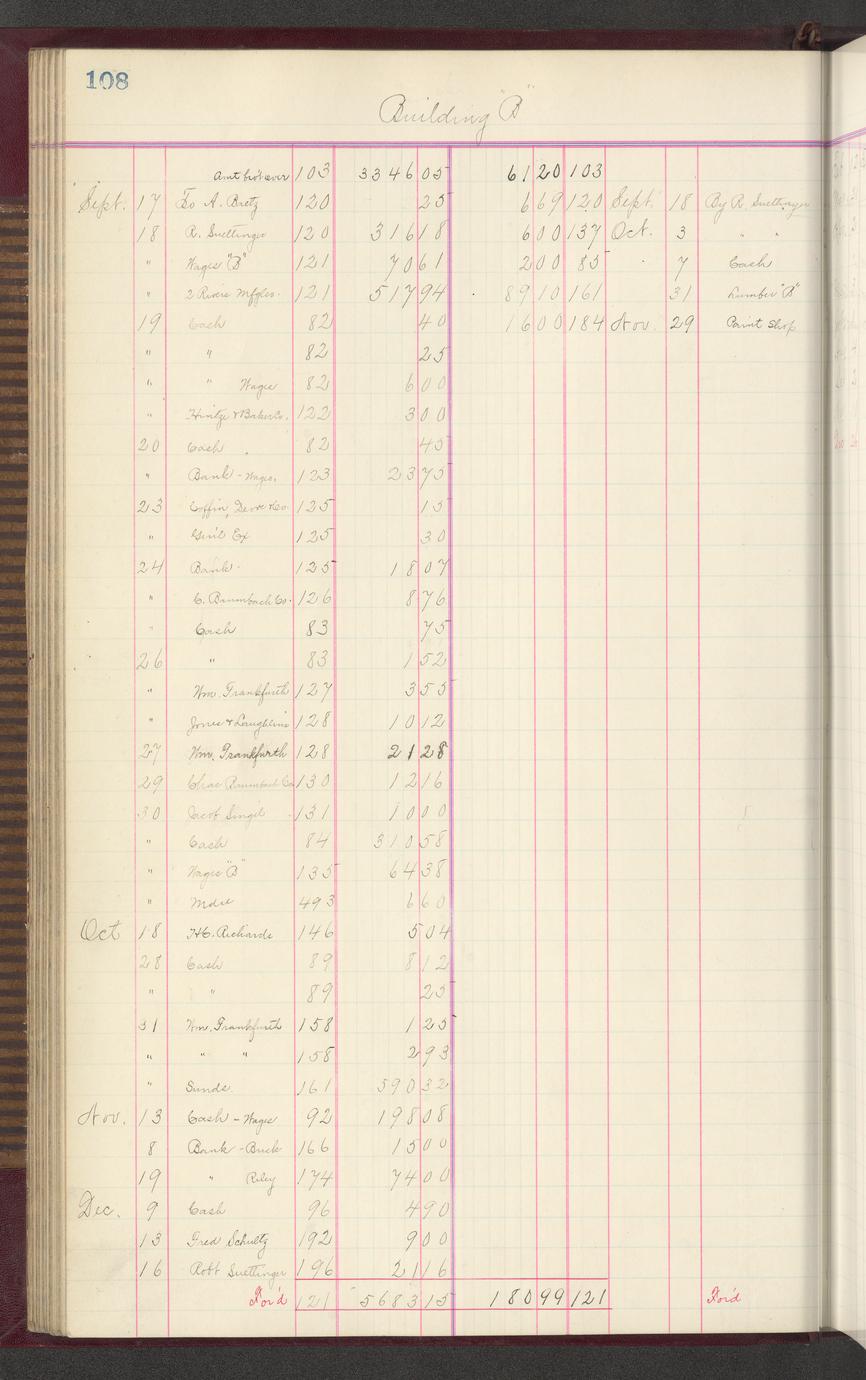 108
Building "B"
Amt bro't over 103 3346 05 61 20 103
Sept. 17 To A. Bretz 120 25 6 69 120 Sept. 18 By R. Suettinger
18 R. Suettinger 120 316 18 6 00 137 Oct. 3 " "
" Wages "B" 121 70 61 2 00 85 7 Cash
" 2 Rivers Mfg Co. 121 517 94 89 10 161 31 Lumber "B"
19 Cash 82 40 16 00 184 Nov. 29 Paint Shop
" " 82 25
" " Wages 82 6 00
" Hintze & Baker Co. 122 3 00
20 Cash 82 45
" Bank - Wages. 123 23 75
23 Coffin, Devoe & Co. 125 15
" Gen'l Ex 125 30
24 Bank 125 18 07
" C. Baumbach Co. 126 8 76
" Cash 83 75
26 " 83 1 52
" Wm. Frankfurth 127 3 55
" Jones & Laughlins 128 10 12
27 Wm. Frankfurth 128 21 28
29 Chas Baumbach Co 130 12 16
30 Jacob Singel 131 10 00
" Cash 84 310 58
" Wages "B" 135 64 38
" Mdse 493 6 60
Oct 18 H.C. Richards 146 5 04
28 Cash 89 8 12
" " 89 25
31 Wm. Frankfurth 158 1 25
" " " 158 2 93
" Sunds. 161 590 32
Nov. 13 Cash - Wages 92 198 08
8 Bank - Buck 166 15 00
19 " Riley 174 74 00
Dec. 9 Cash 96 4 90
13 Fred Schultz 192 9 00
16 Robt Suettinger 196 21 16
For'd 121 5683 15 180 99 121 For'd